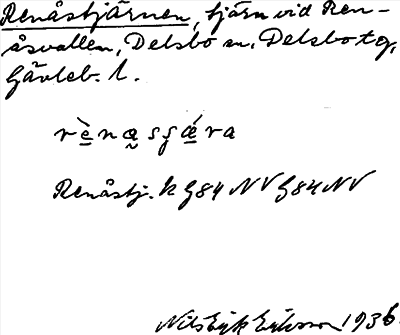 Renåstjärnen, tjärn vid Ren-
åsvallen, Delsbo sn, Delsbo tg,
Gävleb. l.
rènasʃǽra
Renåstj. k G84 NV G84 NV
Nils Eric Ericson 1936